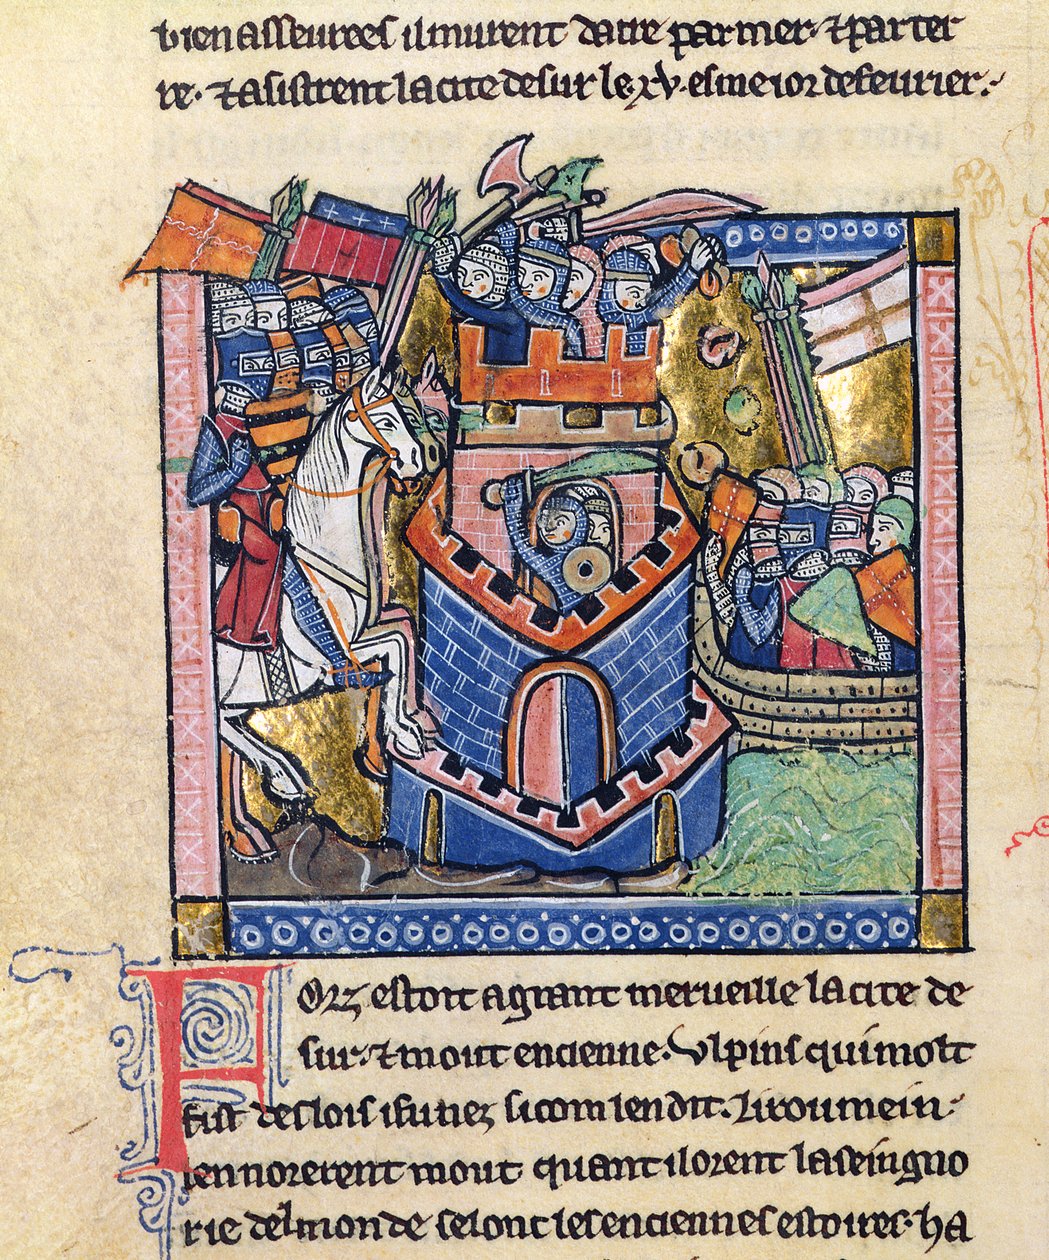 bien asseurees il murent dacre par mer · ⁊ par ter
re · ⁊ asistrent la cite de sur le · xv · esme ior de feurier ·
Forz estoit a grant merueille la cite de
sur · ⁊ mout encienne · Vlpins qui molt
fist des lois i fu nez si com len dit · Li roumein
lennorerent mout quant il orent la seingno
rie del monde selonc les enciennes estoires · ha